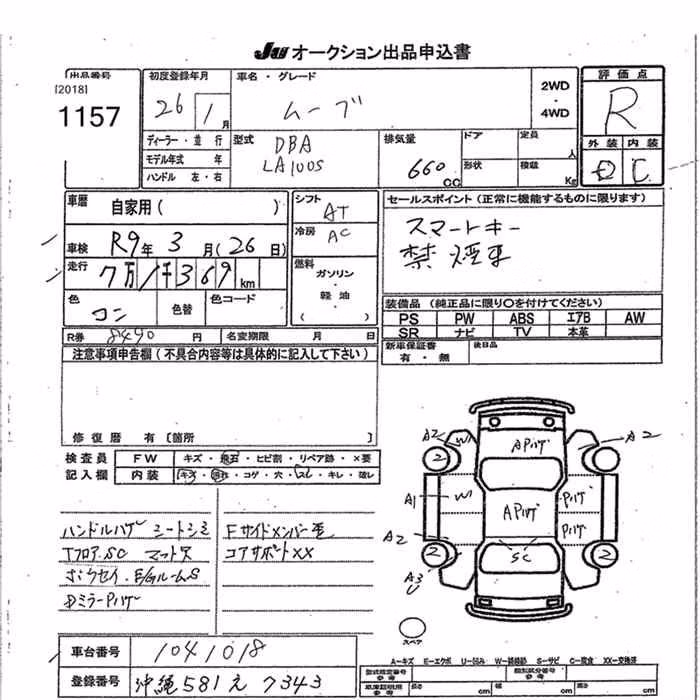 JU オークション出品申込書
出品番号
[2018]
1157
初度登録年月
26 1 月
車名・グレード
ムーブ
2WD
・
4WD
評価点
R
外装 内装
D C
ディーラー・並行
モデル年式 年
ハンドル 左・右
型式
DBA
LA100S
排気量
660
CC
ドア
形状
定員
人
積載
Kg
車歴
自家用( )
車検 R9年 3 月(26 日)
走行 7万1千369km
色
コン
色替
色コード
シフト
AT
冷房
AC
燃料
ガソリン
・
軽油
セールスポイント(正常に機能するものに限ります)
スマートキー
禁煙車
装備品(純正品に限り〇を付けてください)
PS PW ABS エアB AW
SR ナビ TV 本革
新車保証書
有・無
後日品
R券 8490 円 名変期限 月 日
注意事項申告欄(不具合内容等は具体的に記入して下さい)
修復歴 有[箇所 ]
検査員 FW キズ・飛石・ヒビ割・リペア跡・×要
記入欄 内装 キズ・汚れ・コゲ・穴・スレ・キレ・破レ
ハンドルハゲ シートシミ
TフロアSC マット穴
E/GルームS
ミラーPハゲ
Fサイドメンバー歪
コアサポートXX
A2 W APハゲ A2
2 2
A1 W APハゲ Pハゲ
Pハゲ
A2
2 SC 2
A3
U
スペア
A-キズ E-エクボ U-凹み W-補修跡 S-サビ C-腐食 XX-交換済
車台番号 1041018
登録番号 沖縄581え7343
型式指定番号
参考
類別区分番号
参考
車庫証明用
参考
長さ cm 幅 cm 高さ cm